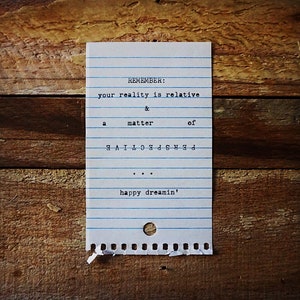 REMEMBER:
your reality is relative
&
a matter of
PERSPECTIVE
...
happy dreamin'